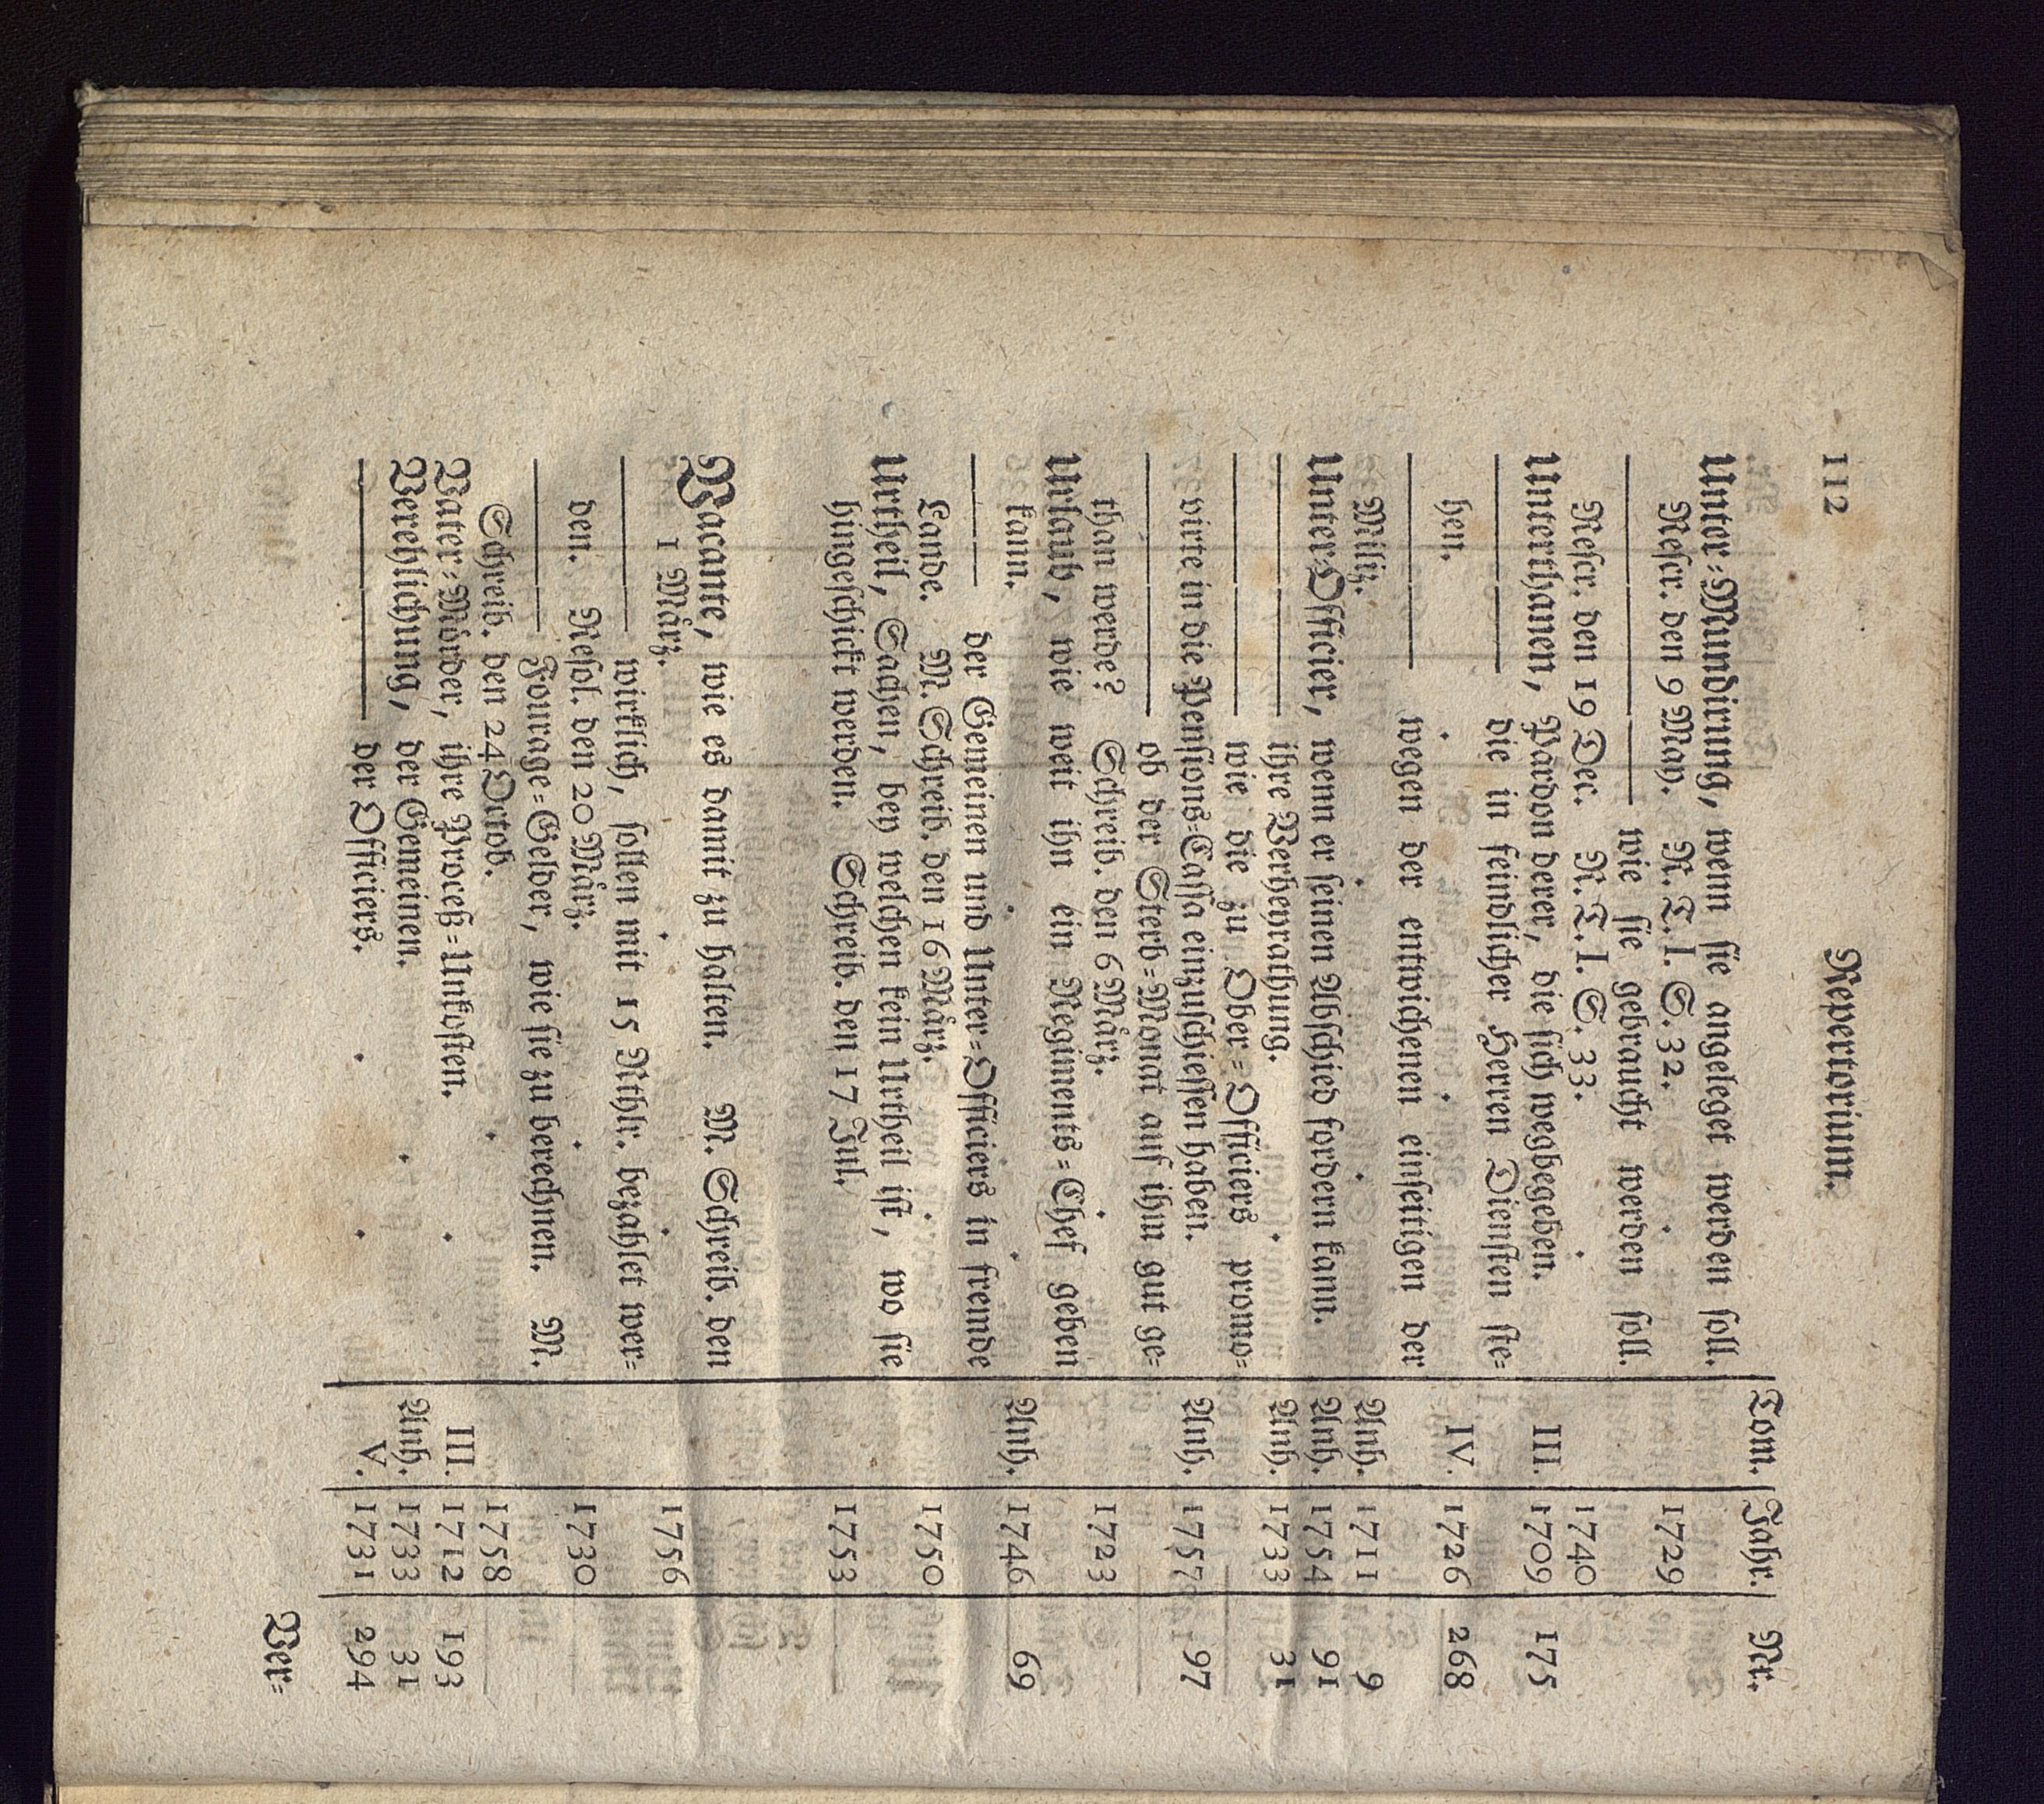 112 Repertorium.
Tom. Jahr. Nr.
Unter=Mundirung, wenn sie angeleget werden soll.
Rescr. den 9 May. N. T. I. S. 32. 1729
—— —— wie sie gebraucht werden soll.
Rescr. den 19 Dec. N. T. I. S. 33. 1740
Unterthanen, Pardon derer, die sich wegbegeben. III. 1709 175
—— —— die in feindlicher Herren Diensten ste=
hen. IV. 1726 268
—— —— wegen der entwichenen einseitigen der
Miliz. Anh. 1711 9
Unter=Officier, wenn er seinen Abschied fordern kann. Anh. 1754 91
—— —— ihre Verheyrathung. Anh. 1733 31
—— —— wie die zu Ober=Officiers promo=
virte in die Pensions=Cassa einzuschiessen haben. Anh. 1757 97
—— —— ob der Sterb=Monat auf ihm gut ge=
than werde? Schreib. den 6 März. 1723
Urlaub, wie weit ihn ein Regiments=Chef geben
kann. Anh. 1746 69
—— —— der Gemeinen und Unter=Officiers in fremde
Lande. M. Schreib. den 16 März. 1750
Urtheil, Sachen, bey welchen kein Urtheil ist, wo sie
hingeschickt werden. Schreib. den 17 Jul. 1753
Vacante, wie es damit zu halten. M. Schreib. den
1 März. 1756
—— —— würklich, sollen mit 15 Rthlr. bezahlet wer=
den. Resol. den 20 März. 1730
—— —— Fourage=Gelder, wie sie zu berechnen. M.
Schreib. den 24 Octob. 1758
Vater=Mörder, ihre Proceß=Unkosten. III. 1712 193
Verehlichung, der Gemeinen. Anh. 1733 31
—— —— der Officiers. V. 1731 294
Ver=